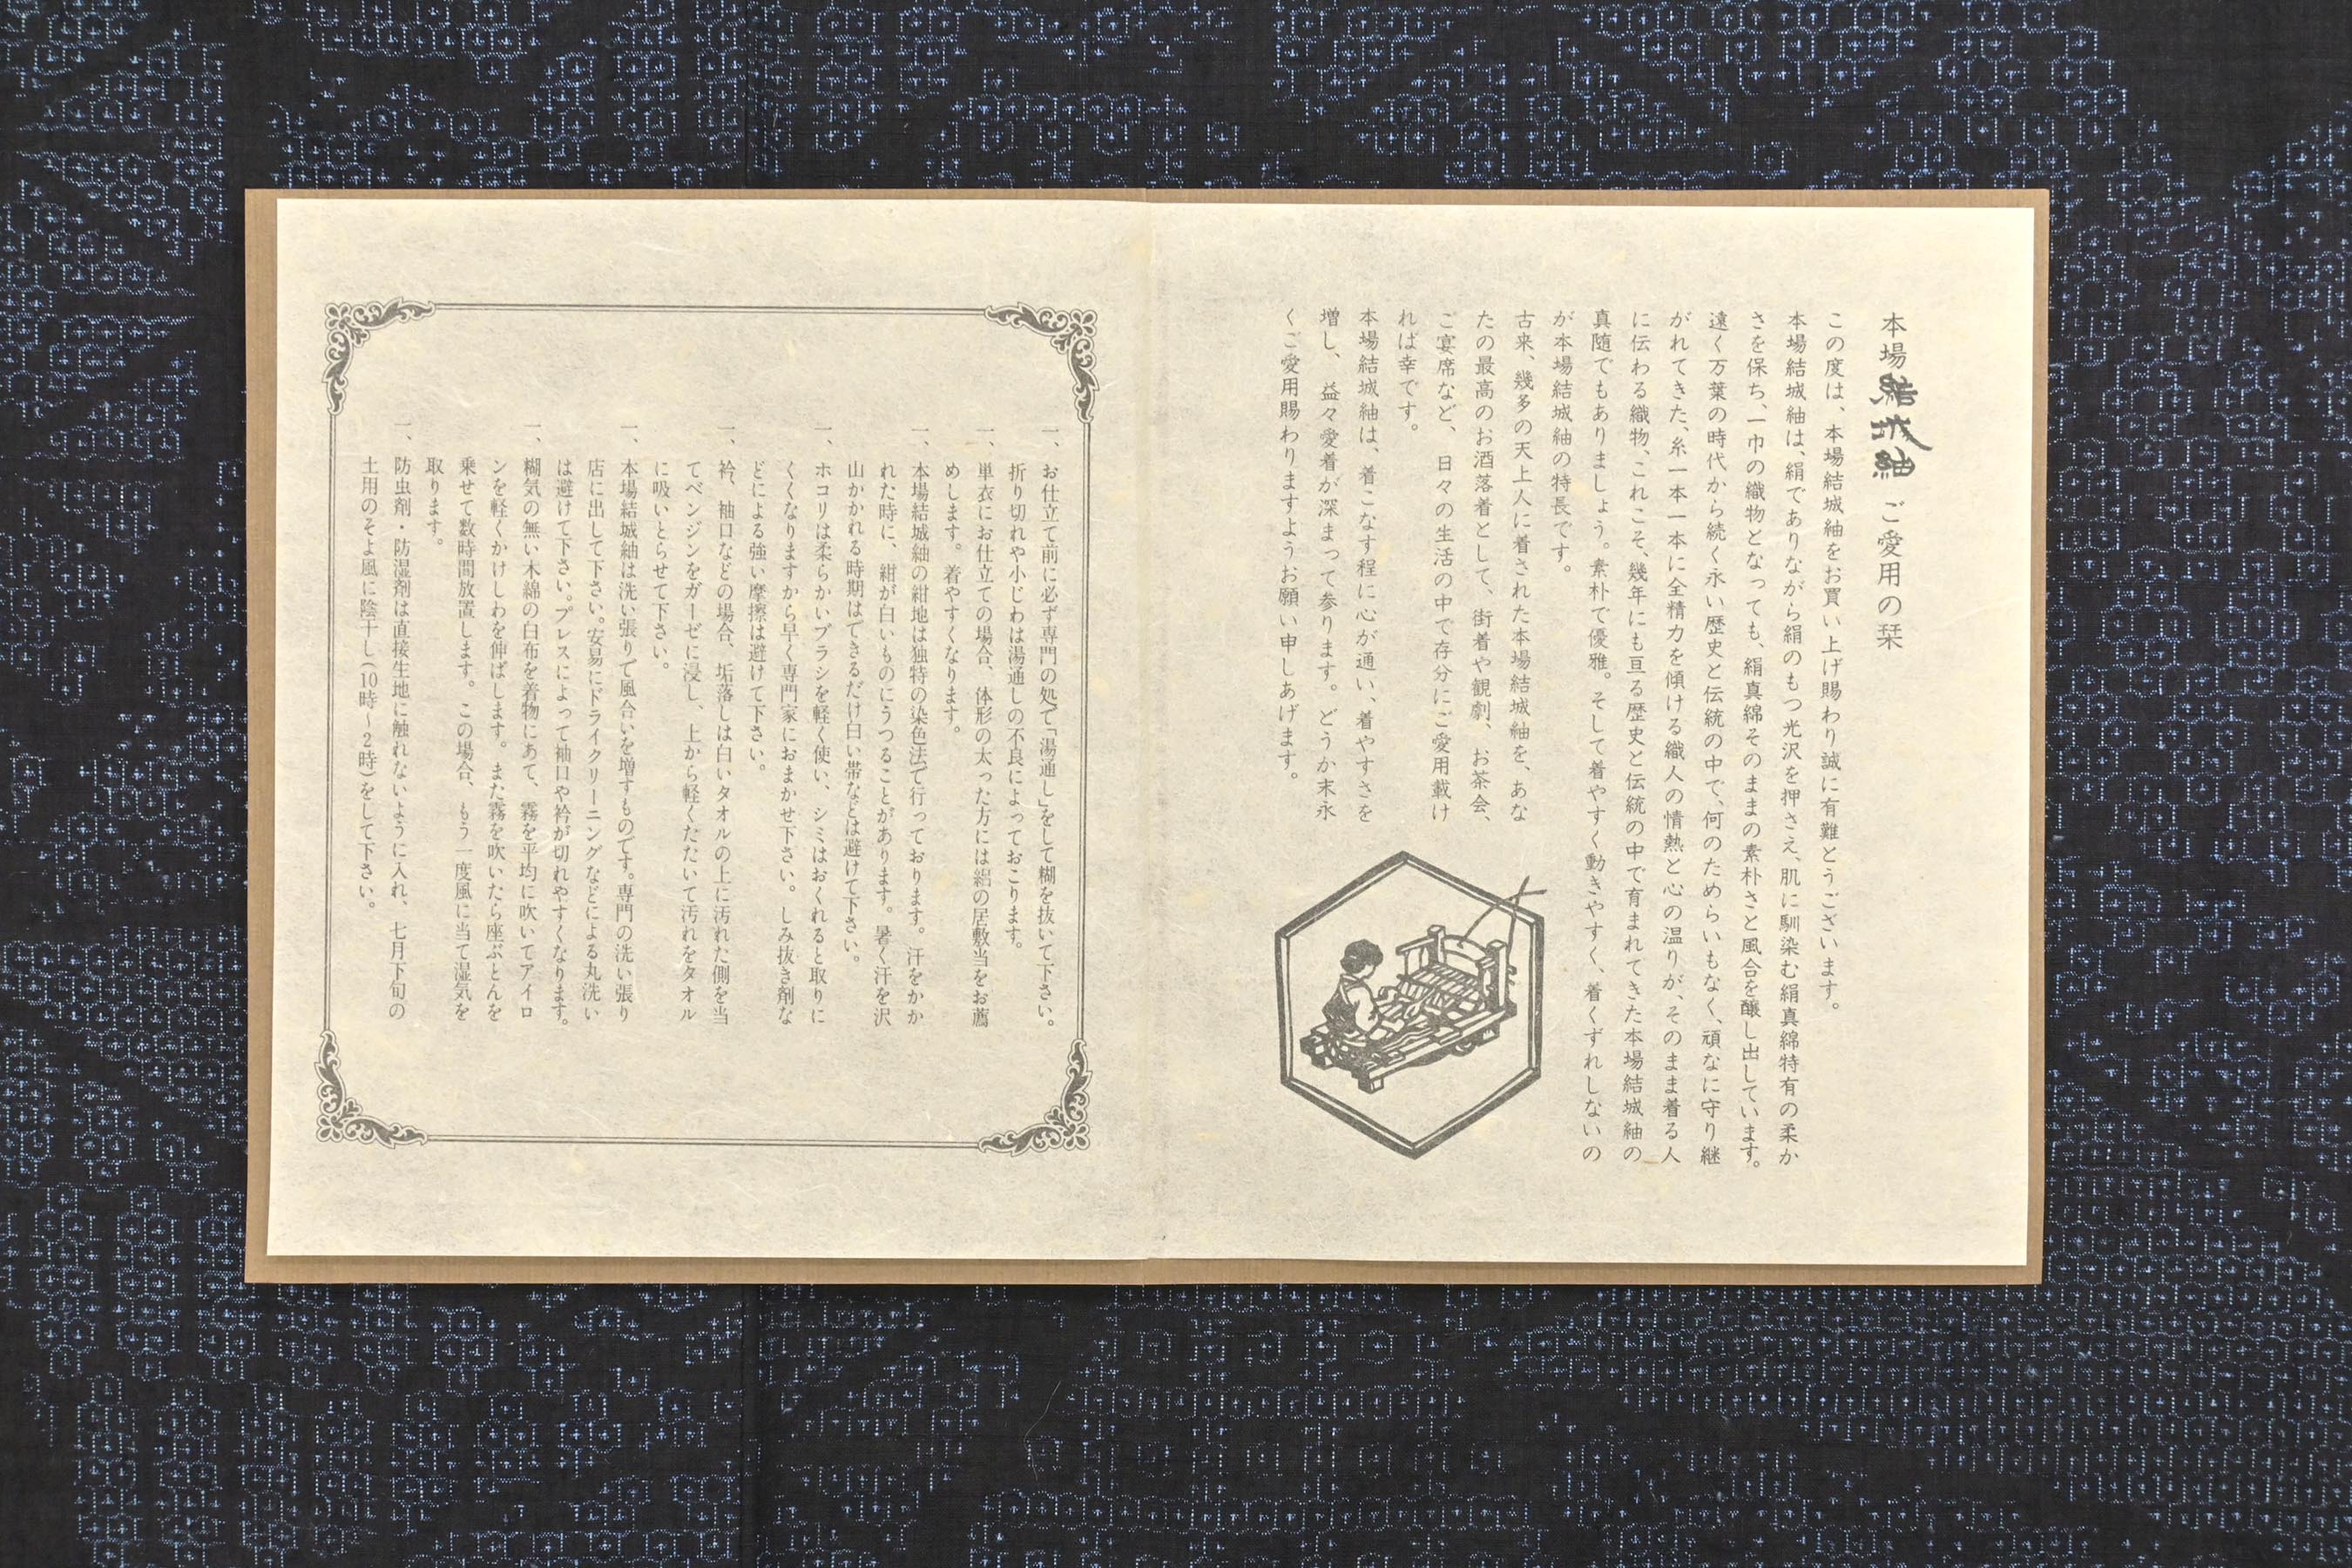 本場結城紬 ご愛用の栞
この度は、本場結城紬をお買い上げ賜わり誠に有難とうございます。
本場結城紬は、絹でありながら絹のもつ光沢を押さえ、肌に馴染む絹真綿特有の柔か
さを保ち、一巾の織物となっても、絹真綿そのままの素朴さと風合を醸し出しています。
遠く万葉の時代から続く永い歴史と伝統の中で、何のためらいもなく、頑なに守り継
がれてきた、糸一本一本に全精力を傾ける織人の情熱と心の温りが、そのまま着る人
に伝わる織物、これこそ、幾年にも亘る歴史と伝統の中で育まれてきた本場結城紬の
真随でもありましょう。素朴で優雅。そして着やすく動きやすく、着くずれしないの
が本場結城紬の特長です。
古来、幾多の天上人に着された本場結城紬を、あな
たの最高のお酒落着として、街着や観劇、お茶会、
ご宴席など、日々の生活の中で存分にご愛用載け
れば幸です。
本場結城紬は、着こなす程に心が通い、着やすさを
増し、益々愛着が深まって参ります。どうか末永
くご愛用賜わりますようお願い申しあげます。
一、お仕立て前に必ず専門の処で「湯通し」をして糊を抜いて下さい。
折り切れや小じわは湯通しの不良によっておこります。
一、単衣にお仕立ての場合、体形の太った方には絽の居敷当をお薦
めします。着やすくなります。
一、本場結城紬の紺地は独特の染色法で行っております。汗をかか
れた時に、紺が白いものにうつることがあります。暑く汗を沢
山かかれる時期はできるだけ白い帯などは避けて下さい。
一、ホコリは柔らかいブラシを軽く使い、シミはおくれると取りに
くくなりますから早く専門家におまかせ下さい。しみ抜き剤な
どによる強い摩擦は避けて下さい。
一、衿、袖口などの場合、垢落しは白いタオルの上に汚れた側を当
てベンジンをガーゼに浸し、上から軽くたたいて汚れをタオル
に吸いとらせて下さい。
一、本場結城紬は洗い張りで風合いを増すものです。専門の洗い張り
店に出して下さい。安易にドライクリーニングなどによる丸洗い
は避けて下さい。プレスによって袖口や衿が切れやすくなります。
一、糊気の無い木綿の白布を着物にあて、霧を平均に吹いてアイロ
ンを軽くかけしわを伸ばします。また霧を吹いたら座ぶとんを
乗せて数時間放置します。この場合、もう一度風に当て湿気を
取ります。
一、防虫剤・防湿剤は直接生地に触れないように入れ、七月下旬の
土用のそよ風に陰干し(10時～2時)をして下さい。